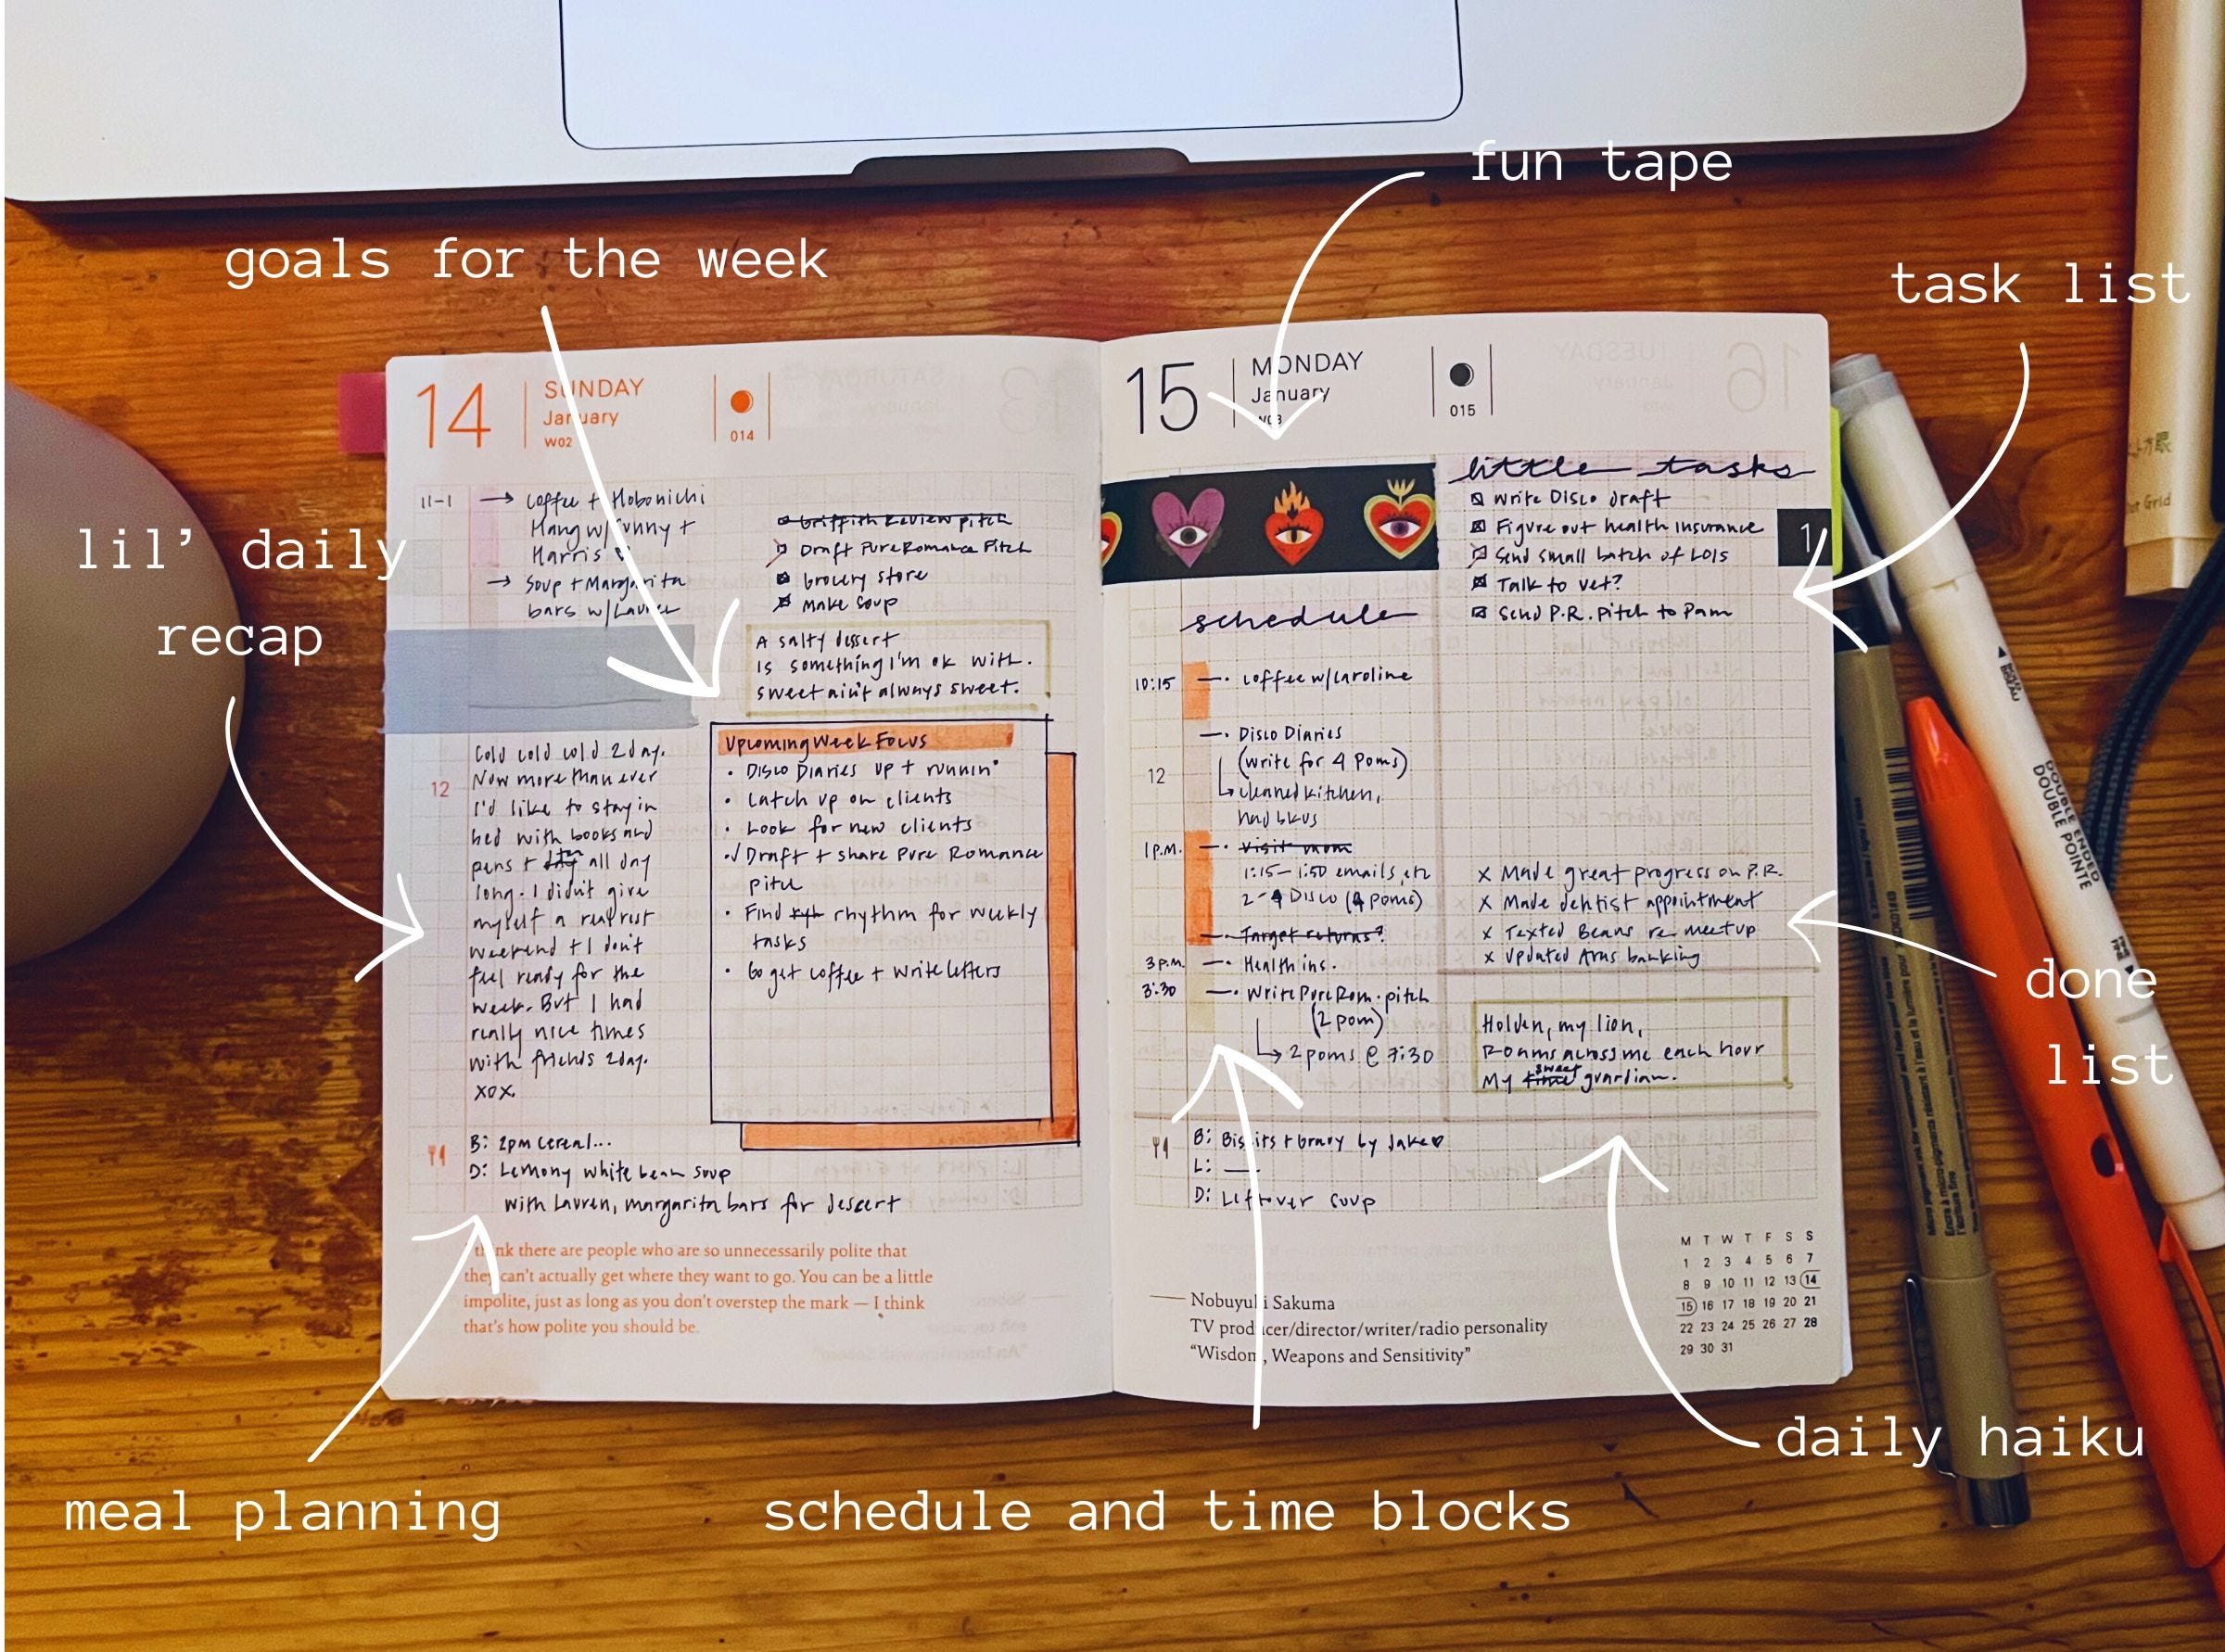 fun tape
goals for the week
task list
lil' daily
recap
14
SUNDAY
January
W02
014
11-1
→ Coffee + Hobonichi
Hang w/ Sunny +
Harris ♡
→ Soup + Margarita
bars w/ Lauren
Griffith Review pitch
Draft Pure Romance Pitch
Grocery store
Make Soup
A salty dessert
Is something I'm ok with.
Sweet ain't always sweet.
12
Cold cold cold 2day.
Now more than ever
I'd like to stay in
bed with books and
pens + all day
long. I didn't give
myself a real rest
weekend + I don't
feel ready for the
week. But I had
really nice times
with friends 2day.
xox.
Upcoming Week Focus
• Disco Diaries up + runnin'
• Catch up on clients
• Look for new clients
•√ Draft + share Pure Romance
pitch
• Find rhythm for weekly
tasks
• Go get coffee + write letters
B: 2pm cereal...
D: Lemony white bean soup
with Lauren, margarita bars for dessert
think there are people who are so unnecessarily polite that
they can't actually get where they want to go. You can be a little
impolite, just as long as you don't overstep the mark — I think
that's how polite you should be.
15
MONDAY
January
W03
015
1
little tasks
Write Disco draft
Figure out health insurance
Send small batch of LOIs
Talk to vet?
Send P.R. pitch to Pam
schedule
10:15 —• Coffee w/ Caroline
—• Disco Diaries
(write for 4 poms)
12
↳ cleaned kitchen,
had bkus
1 P.M. —• Visit mom
1:15-1:50 emails, etc
2-4 Disco (4 poms)
—• Target returns?
3 p.m. —• Health ins.
3:30 —• Write Pure Rom. pitch
(2 pom)
↳ 2 poms @ 7:30
x Made great progress on P.R.
x Made dentist appointment
x Texted Beans re meetup
x Updated Arms banking
Holden, my lion,
Roams across me each hour
My time sweet guardian.
B: Biscuits + Gravy by Jake ♥
L: —
D: Leftover soup
Nobuyuki Sakuma
TV producer/director/writer/radio personality
"Wisdom, Weapons and Sensitivity"
M T W T F S S
1 2 3 4 5 6 7
8 9 10 11 12 13 14
15 16 17 18 19 20 21
22 23 24 25 26 27 28
29 30 31
done
list
DOUBLE ENDED
DOUBLE POINTE
daily haiku
meal planning
schedule and time blocks